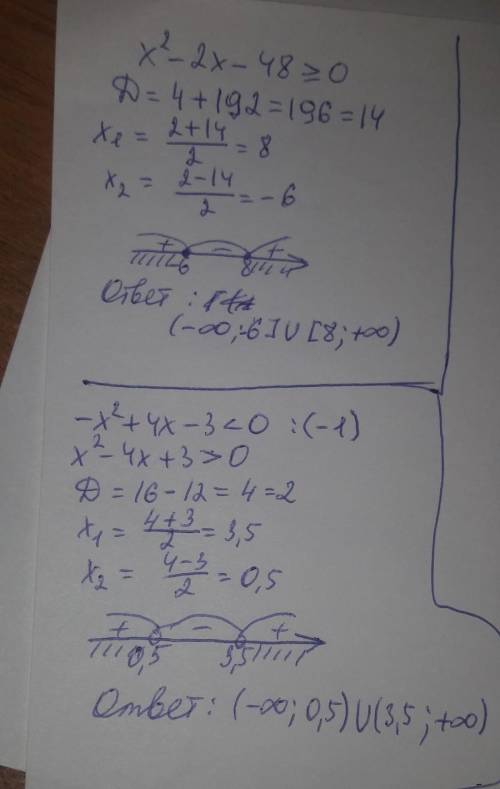 x² - 2x - 48 ≥ 0
Д = 4 + 192 = 196 = 14
x₁ = (2+14)/2 = 8
x₂ = (2-14)/2 = -6
+ - +
-6 8
Ответ :
(-∞;-6] ∪ [8; +∞)
-x² + 4x - 3 < 0 :(-1)
x² - 4x + 3 > 0
Д = 16 - 12 = 4 = 2
x₁ = (4+3)/2 = 3,5
x₂ = (4-3)/2 = 0,5
+ - +
0,5 3,5
Ответ: (-∞; 0,5) ∪ (3,5; +∞)